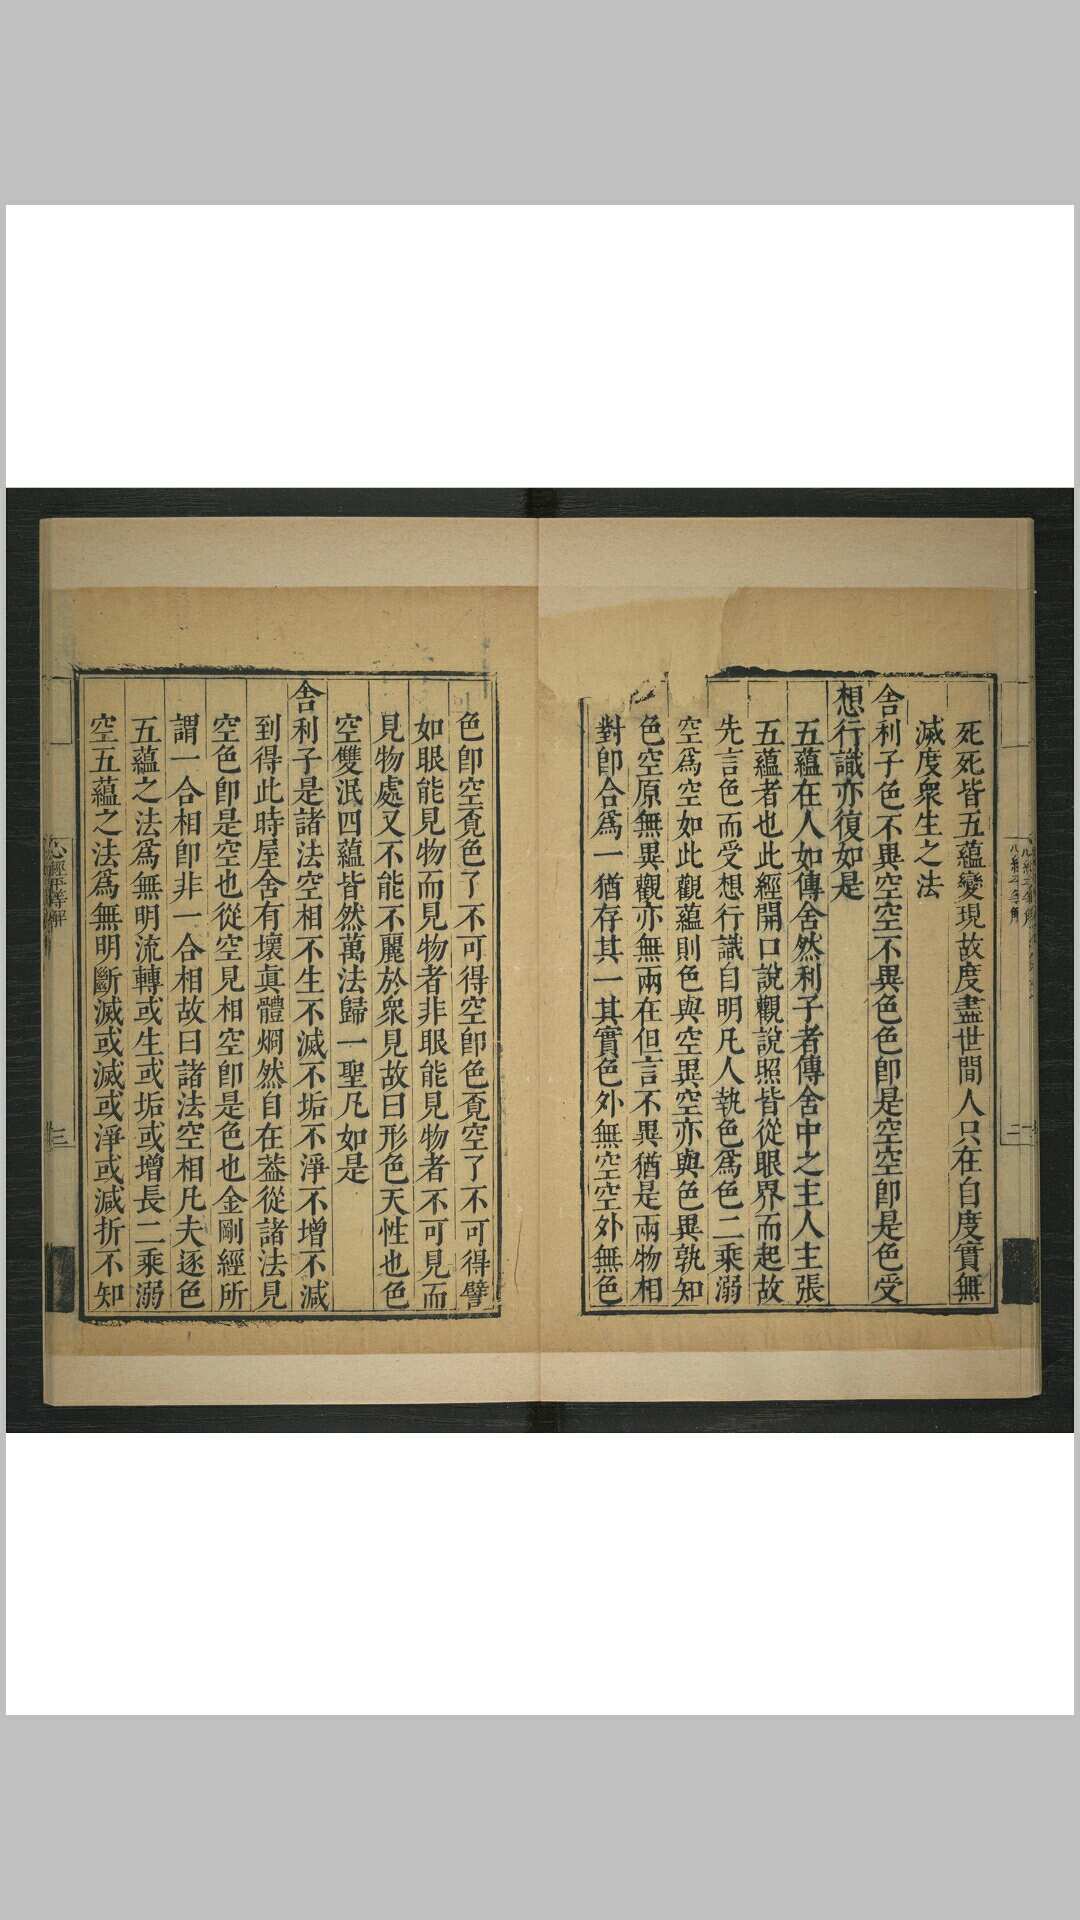 死死皆五蘊變現故度盡世間人只在自度實無
滅度衆生之法
舍利子色不異空空不異色色卽是空空卽是色受
想行識亦復如是
五蘊在人如傳舍然利子者傳舍中之主人主張
五蘊者也此經開口說觀說照皆從眼界而起故
先言色而受想行識自明凡人執色爲色二乘溺
空爲空如此觀蘊則色與空異空亦與色異孰知
色空原無異觀亦無兩在但言不異猶是兩物相
對卽合爲一猶存其一其實色外無空空外無色
色卽空覔色了不可得空卽色覔空了不可得譬
如眼能見物而見物者非眼能見物者不可見而
見物處又不能不麗於衆見故曰形色天性也色
空雙泯四蘊皆然萬法歸一聖凡如是
舍利子是諸法空相不生不滅不垢不淨不增不減
到得此時屋舍有壞眞體烱然自在葢從諸法見
空色卽是空也從空見相空卽是色也金剛經所
謂一合相卽非一合相故曰諸法空相凡夫逐色
五蘊之法爲無明流轉或生或垢或增長二乘溺
空五蘊之法爲無明斷滅或滅或淨或減折不知
心經平等解
三